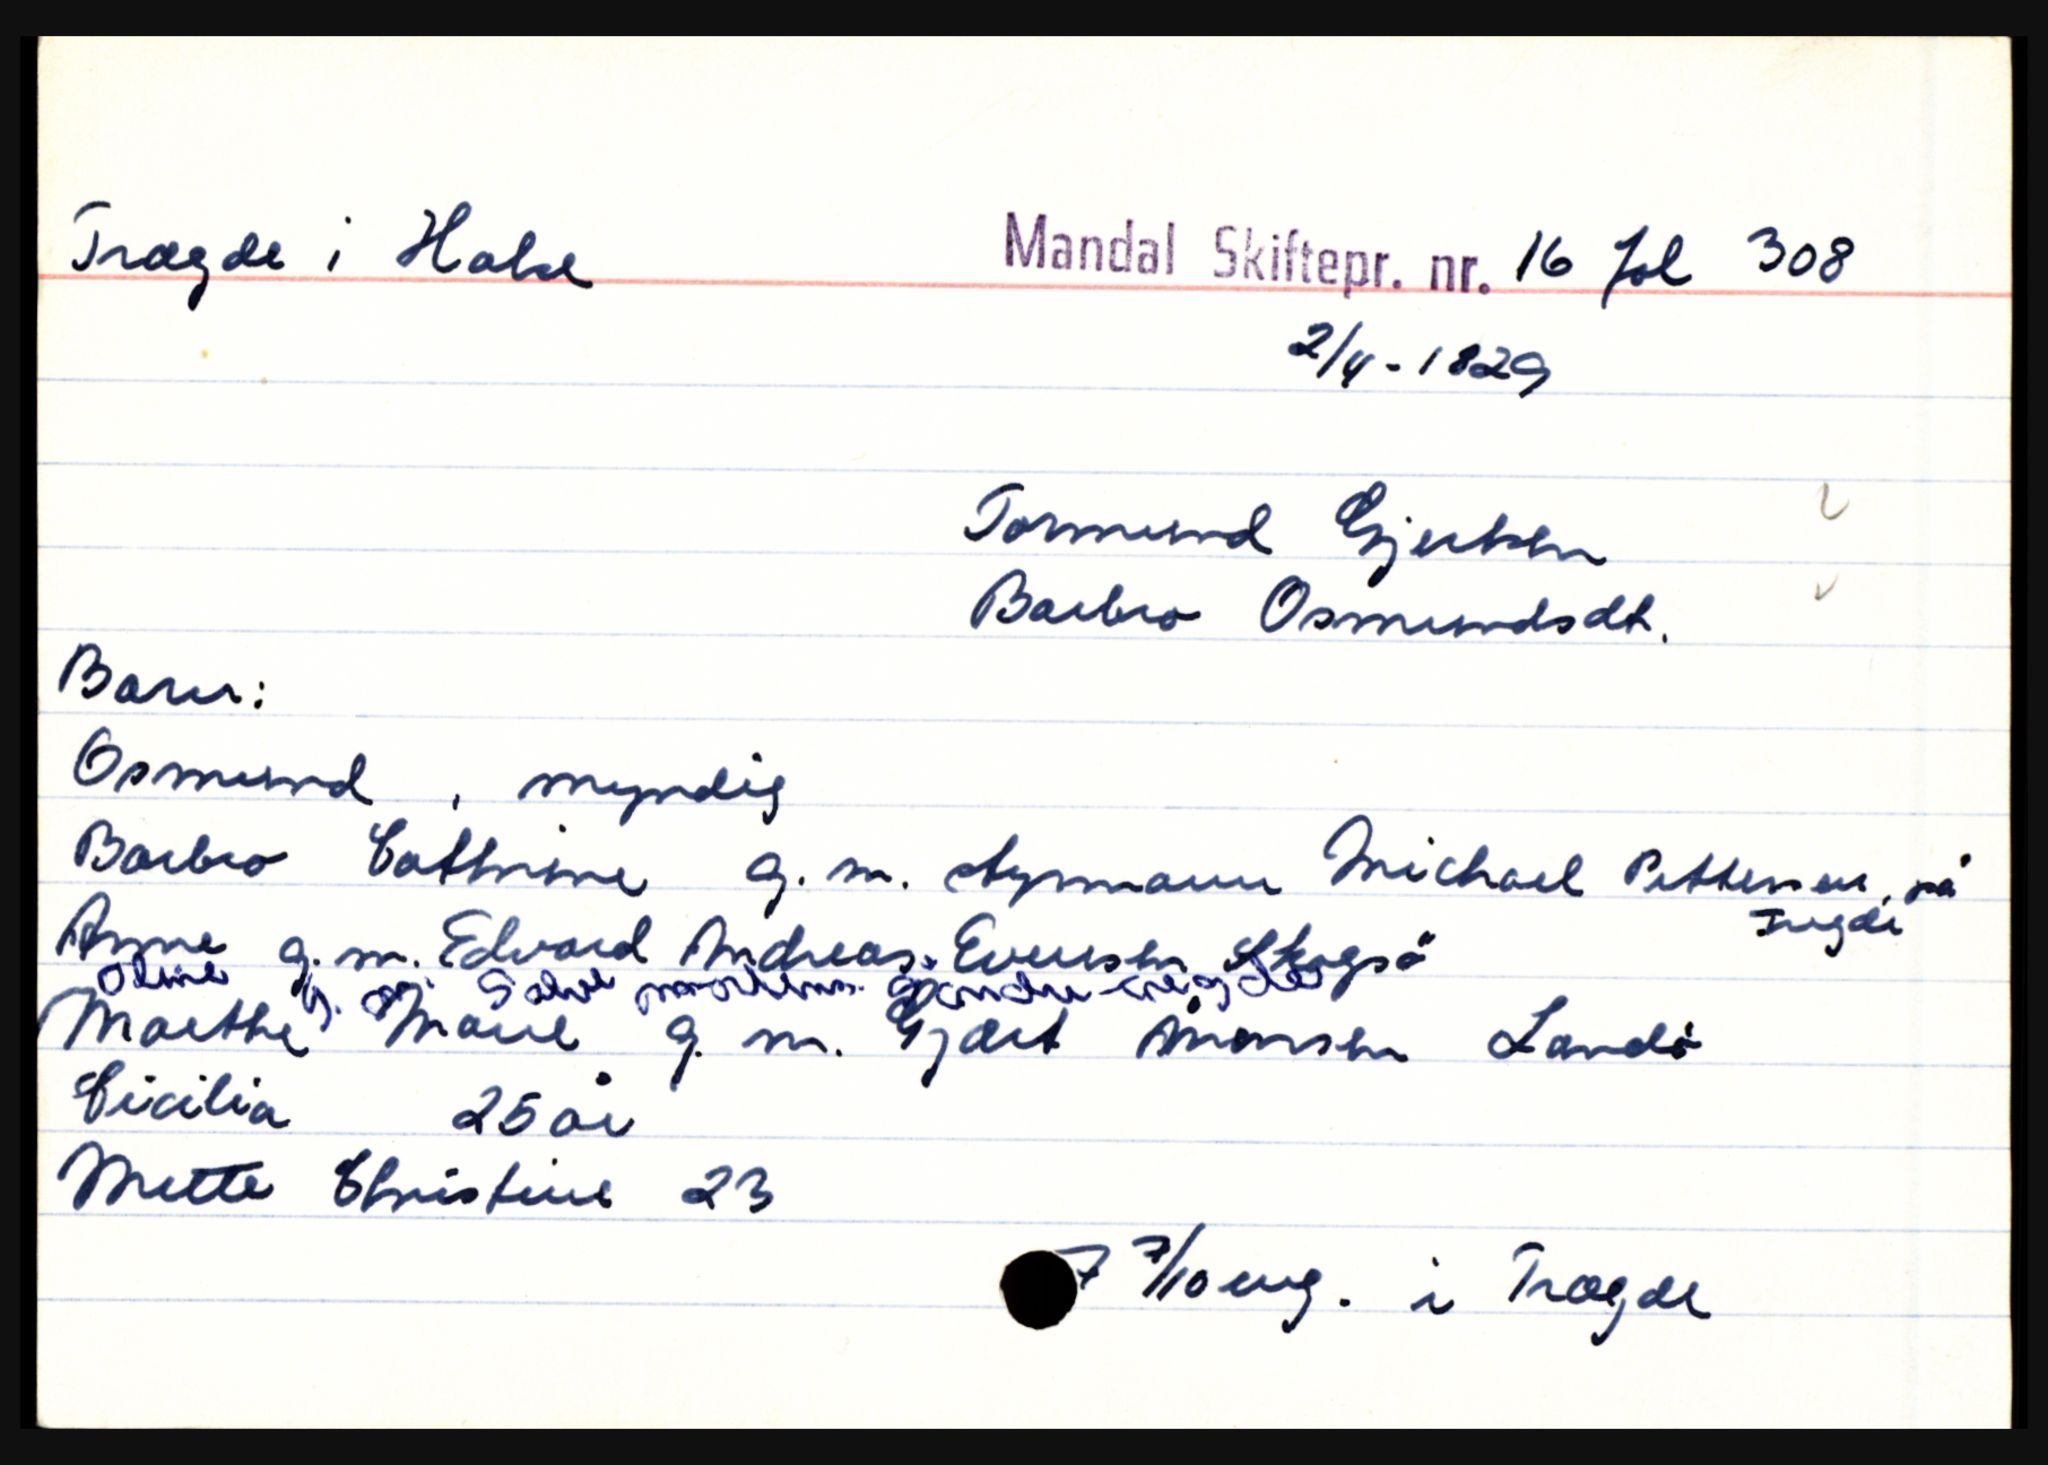 Trægde i Halse
Mandal Skiftepr. nr. 16 fol 308
2/4 - 1829
Tormund Gjertsen
Barbro Osmundsdt.
Barn:
Osmund, myndig
Barbro Cathrine g. m. styrmann Michael Pettersen, på
Trægde
Anne g. m. Edvard Andreas Evensen Skogsö
Oline g. m. Salve
Marthe Marie g. m. Gjært Simonsen Landö
Cicilia 25 år
Mette Christine 23
7 7/10 eng. i Trægde